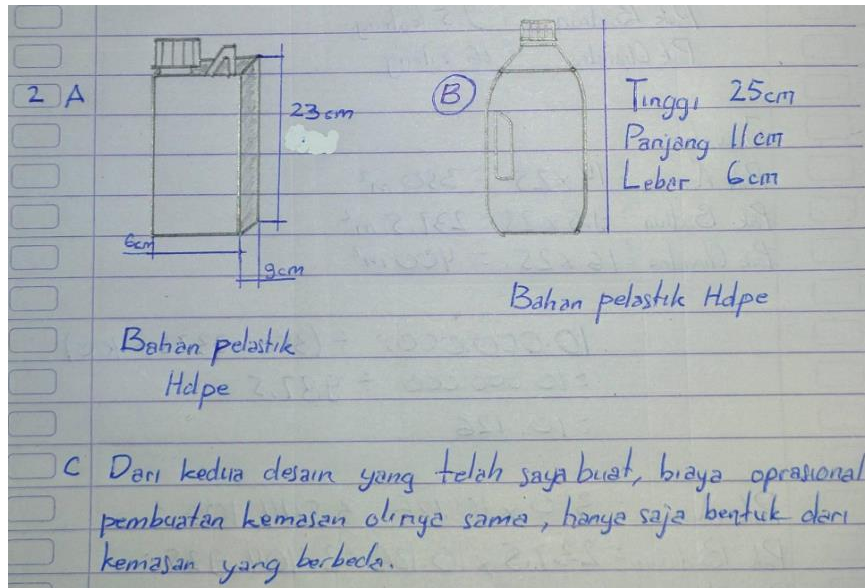 2 A
23 cm
6cm
9cm
Bahan pelastik
Hdpe
B
Tinggi 25cm
Panjang 11 cm
Leber 6cm
Bahan pelastik Hdpe
C Dari kedua desain yang telah saya buat, biaya oprasional
pembuatan kemasan olinya sama, hanya saja bentuk dari
kemasan yang berbeda.